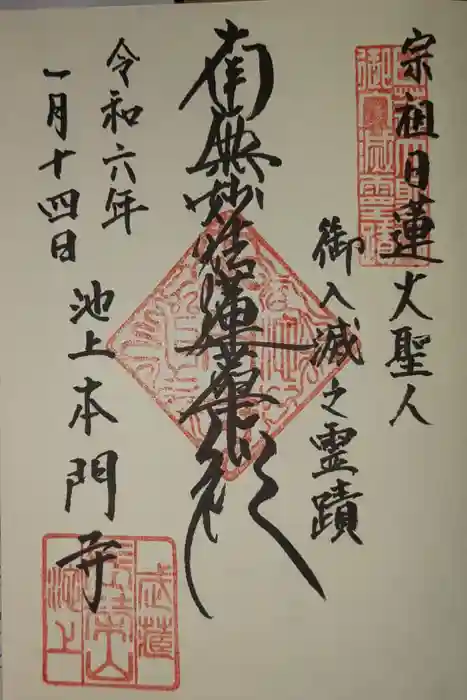 宗祖日蓮大聖人
御入滅之霊蹟
南無妙法蓮華経
令和六年
一月十四日
池上本門寺